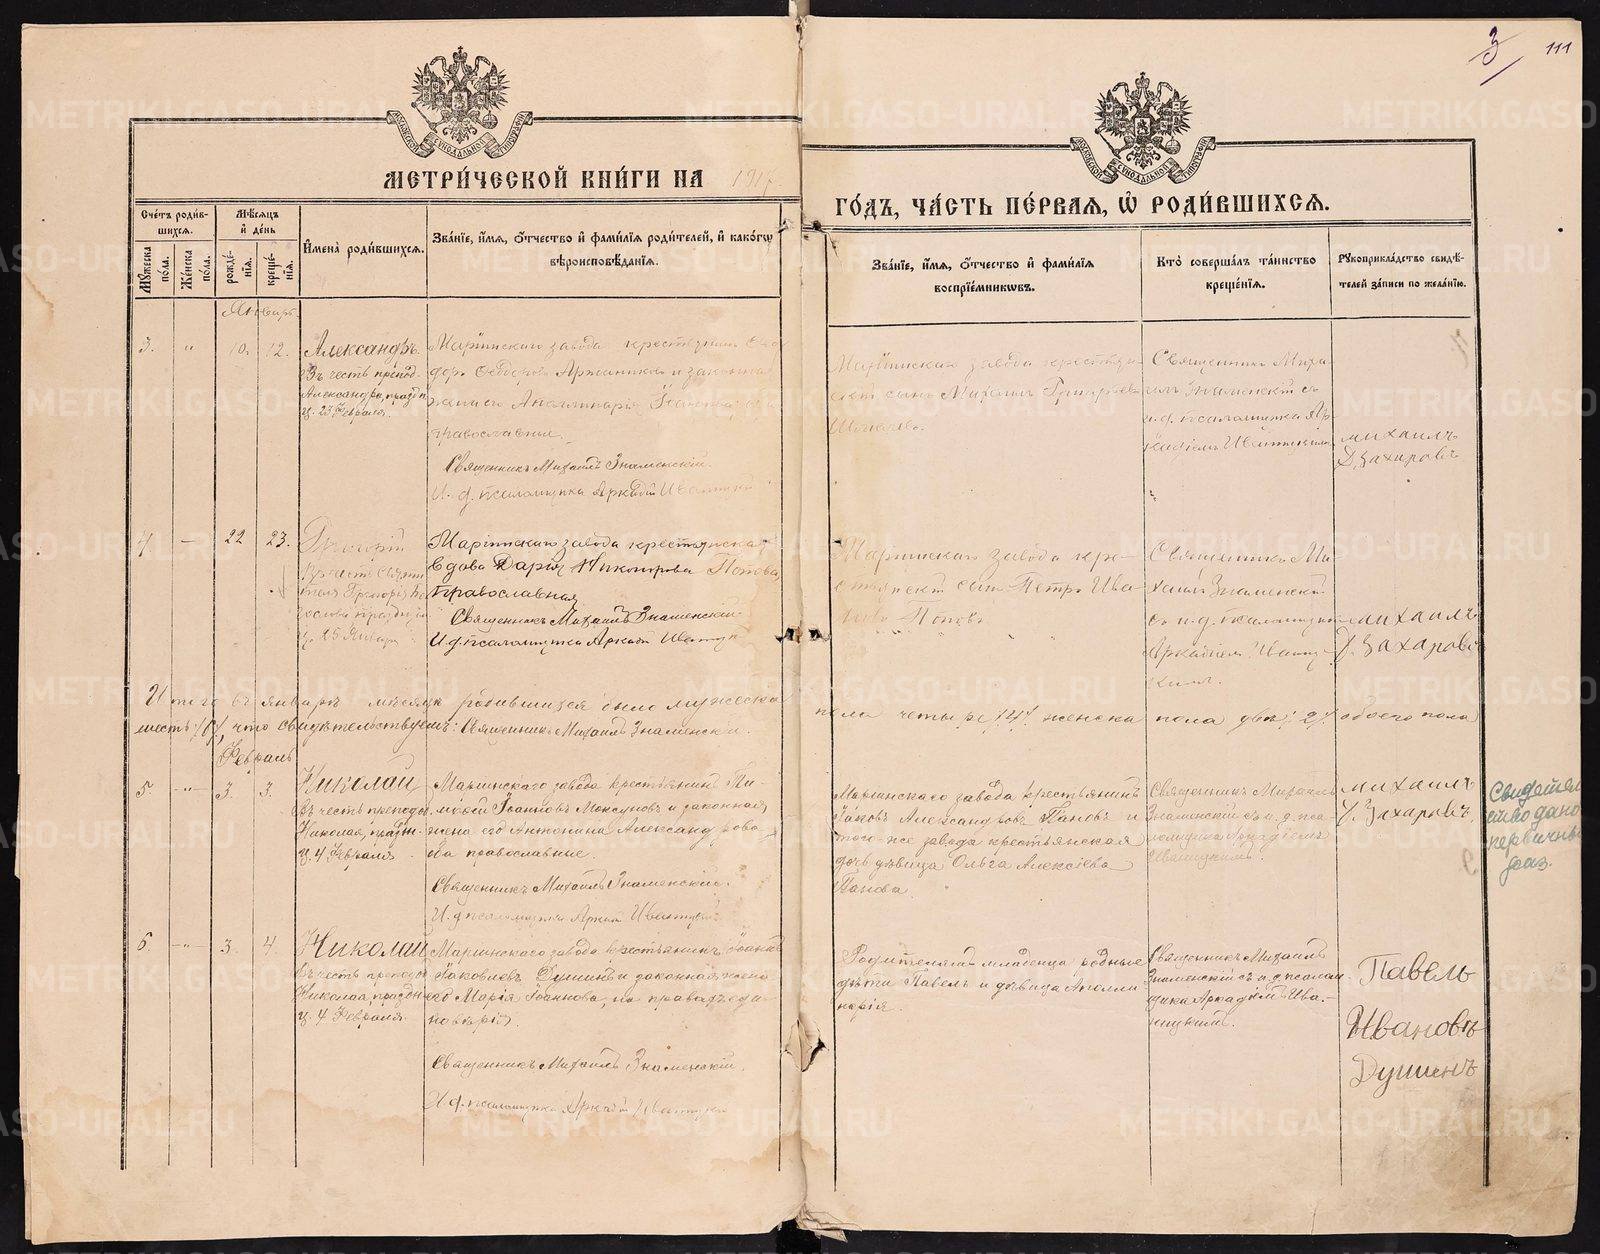 3/ 111
МЕТРИ́ЧЕСКОЙ КНИ́ГИ НА 1917
ГО́ДЪ, ЧА́СТЬ ПЕ́РВАЯ, Ѽ РОДИ́ВШИХСЯ.
Сче́тъ роди́в-
шихся.
Мꙋ́жеска по́ла.
Же́нска по́ла.
Мѣ́сяцъ
и҆ де́нь
рожде́-
нїя.
креще́-
нїя.
И҆мена̀ роди́вшихся.
Зва́нїе, и҆́мя, ѻ҆́тчество и҆ фами́лїя роди́телей, и҆ како́гѡ
вѣроисповѣ́данїя.
Зва́нїе, и҆́мя, ѻ҆́тчество и҆ фами́лїя
воспрїе́мникѡвъ.
Кто̀ соверша́лъ та́инство
креще́нїя.
Рꙋкоприкла́дство свидѣ́-
телей за́писи по жела́нїю.
Январь
3. " 10. 12.
Александръ.
Въ честь препод.
Александра, праздн.
ц. 23 Февраля.
Маріинскаго завода крестьянинъ
законная
жена его Аполлинарія Іоаннова
православные.
Священникъ Михаилъ Знаменскій.
И. д. псаломщика Аркадій
Маріинскаго завода крестьян-
скій сынъ Михаилъ Григорьевъ
Священникъ Миха-
илъ Знаменскій съ
и. д. псаломщика Ар-
кадіемъ
михаилъ
Д. Захаровъ
4. — 22 23.
Григорій
Въ честь Святи-
теля Григорія Бо-
гослова празднуем.
ц. 25 Января
Маріинскаго завода крестьянская
вдова Дарія Никонорова Попова,
православная
Священникъ Михаилъ Знаменскій
И. д. псаломщика Аркадій
Маріинскаго завода кре-
стьянскій сынъ Петръ Ива-
новъ Поповъ
Священникъ Ми-
хаилъ Знаменскій
съ и. д. псаломщика
Аркадіемъ
михаилъ
Д. Захаровъ
Итого въ январѣ мѣсяцѣ родившихся было мужеска пола четыре /4/ женска пола двѣ /2/ обоего пола
шесть /6/, что свидѣтельствуемъ: Священникъ Михаилъ Знаменскій.
Февраль
5. " 3. 3.
Николай
Въ честь преподоб.
Николая, праздн.
ц. 4 Февраля
Маріинскаго завода крестьянинъ Ти-
мофей Іоанновъ и законная
жена его Антонина Александрова
оба православные.
Священникъ Михаилъ Знаменскій.
И. д. псаломщика Аркадій
Маріинскаго завода крестьянинъ
Іаковъ Александровъ Пановъ и
того-же завода крестьянская
дочь дѣвица Ольга Алексіева
Панова
Священникъ Михаилъ
Знаменскій съ и. д. пса-
ломщика Аркадіемъ
михаилъ
Захаровъ
Свидѣтель-
ство дано
первичный
раз.
6. " 3. 4.
Николай
Въ честь преподоб.
Николая праздн.
ц. 4 Февраля.
Маріинскаго завода крестьянинъ Іоаннъ
Іаковлевъ Душинъ и законная жена
его Марія Іоаннова, на правахъ еди-
новѣрія.
Священникъ Михаилъ Знаменскій.
И. д. псаломщика Аркадій
Родителямъ младенца родные
дѣти Павелъ и дѣвица Аполли-
нарія.
Священникъ Михаилъ
Знаменскій съ и. д. псалом-
щика Аркадіемъ
Павелъ
Ивановъ
Душинъ